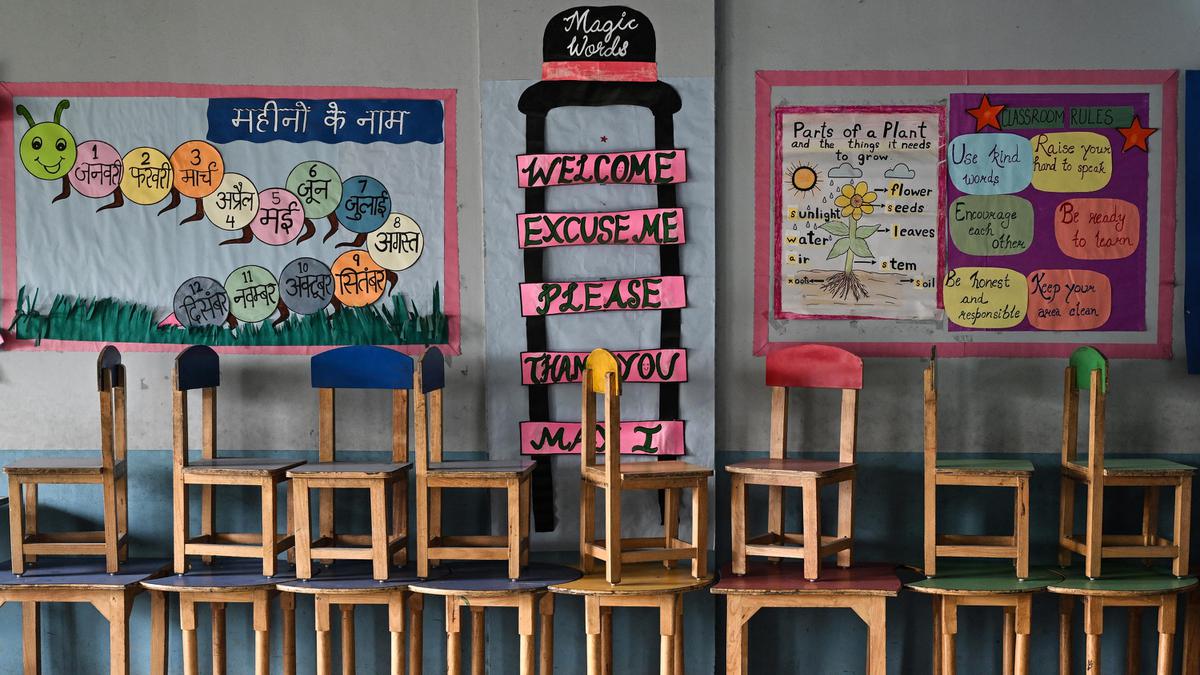 महीनों के नाम
1
जनवरी
2
फरवरी
3
मार्च
अप्रैल
4
5
मई
6
जून
7
जुलाई
8
अगस्त
9
सितंबर
10
अक्टूबर
11
नवम्बर
12
दिसंबर
Magic
Words
WELCOME
EXCUSE ME
PLEASE
THANK YOU
MAY I
Parts of a Plant
and the things it needs
to grow
sunlight
water
air
roots
flower
seeds
leaves
stem
soil
CLASSROOM RULES
Use kind
words
Raise your
hand to speak
Encourage
each
other
Be ready
to learn
Be honest
and
responsible
Keep your
area clean